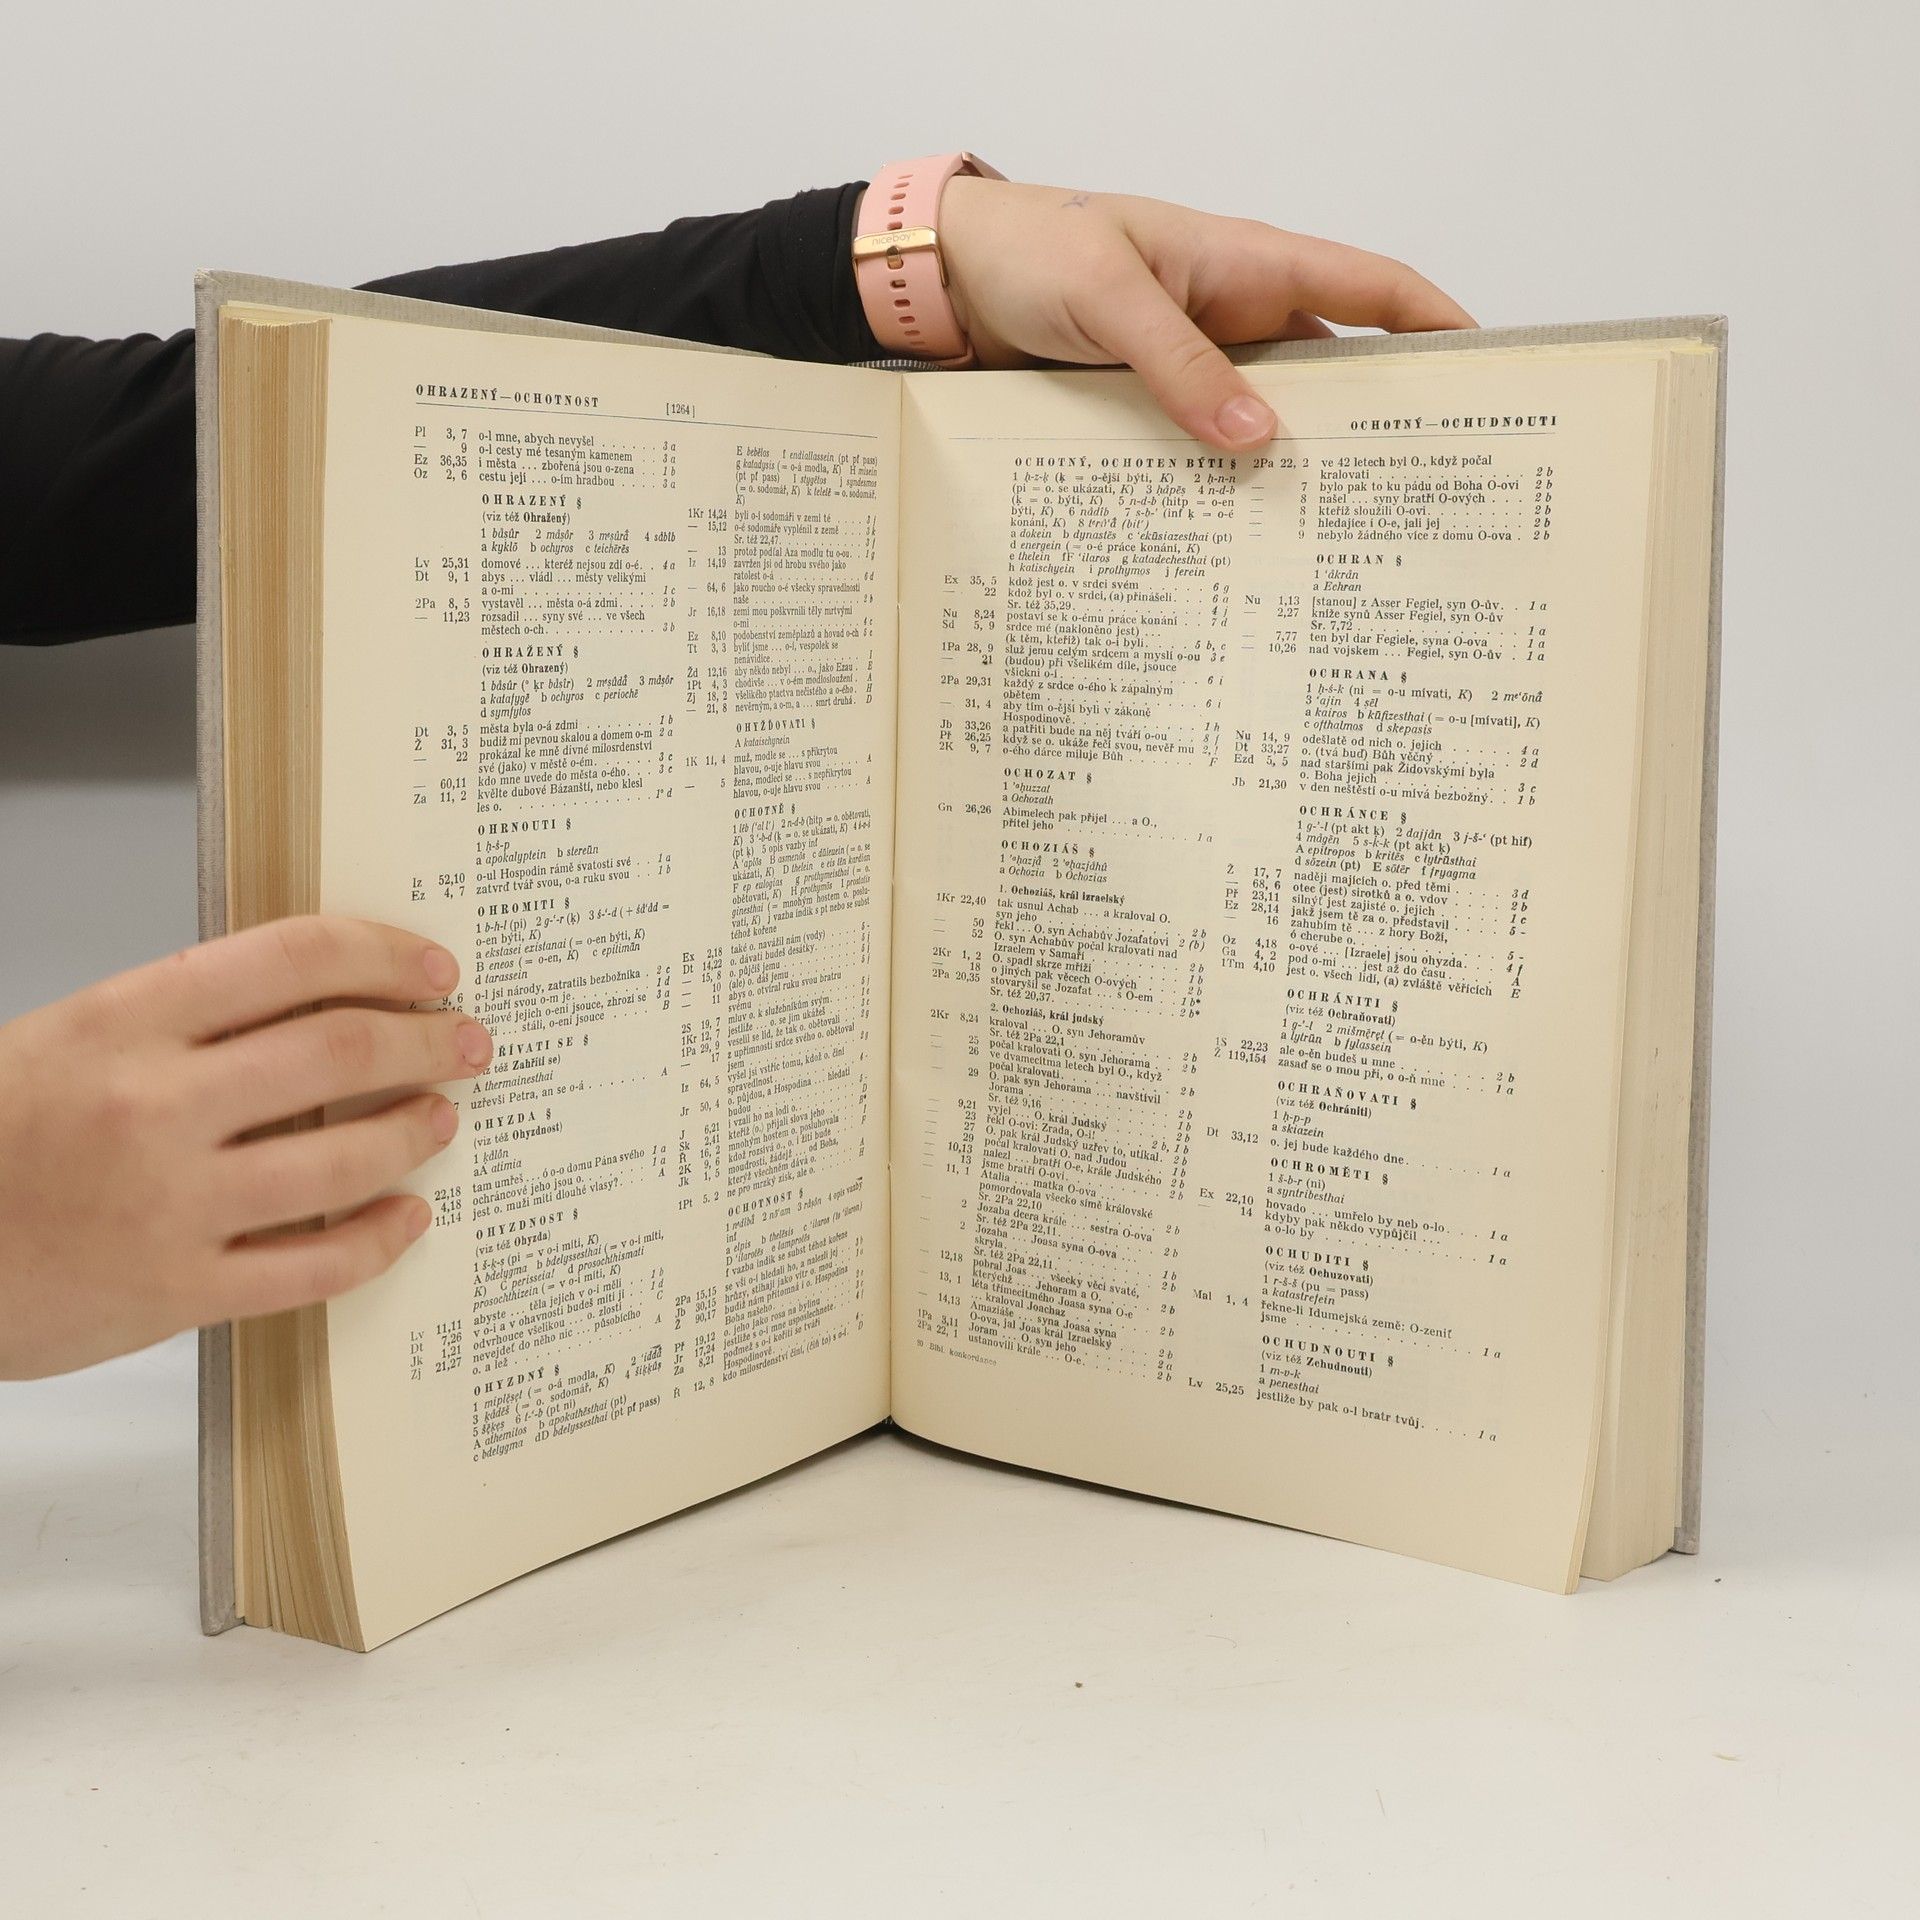 nicebay
OHRAZENÝ—OCHOTNOST
[1264]
Pl 3, 7 o-l mne, abych nevyšel . . . . . . 3 a
— 9 o-l cesty mé tesaným kamenem . . 3 a
Ez 36,35 i města ... zbořená jsou o-zena . 1 b
Oz 2, 6 cestu její ... o-ím hradbou . . . . 3 a
OHRAZENÝ §
(viz též Ohražený)
a kyklō b ochyros c teichērēs
Lv 25,31 domové ... kteréž nejsou zdí o-é. . 4 a
Dt 9, 1 abys ... vládl ... městy velikými
a o-mi . . . . . . . 1 c
2Pa 8, 5 vystavěl ... města o-á zdmi . . . 2 b
— 11,23 rozsadil ... syny své ... ve všech
městech o-ch . . . . . . 3 b
OHRAŽENÝ §
(viz též Ohrazený)
a katafygē b ochyros c periochē
d symfytos
Dt 3, 5 města byla o-á zdmi . . . . . . . 1 b
Ž 31, 3 budiž mi pevnou skalou a domem o-m 2 a
— 22 prokázal ke mně divné milosrdenství
své (jako) v městě o-ém . . . . 3 c
— 60,11 kdo mne uvede do města o-ého. . . 3 c
Za 11, 2 kvělte dubové Bázanští, nebo klesl
les o. . . . . . . 1° d
OHRNOUTI §
1 ḥ-ś-p
a apokalyptein b stereūn
Iz 52,10 o-ul Hospodin rámě svatosti své . . 1 a
Ez 4, 7 zatvrď tvář svou, o-a ruku svou . . 1 b
OHROMITI §
o-en býti, K)
a ekstasei existanai (= o-en býti, K)
B eneos (= o-en, K) c epilimān
d tarassein
9, 6 o-l jsi národy, zatratils bezbožníka . 2 c
a bouří svou o-m je . . . . . . . 1 d
králové jejich o-ení jsouce, zhrozí se 3 a
... stáli, o-ení jsouce . . . . . B
ŘÍVATI SE §
též Zahříti se)
A thermainesthai
uzřevši Petra, an se o-á . . . . . . A
OHYZDA §
(viz též Ohyzdnost)
1 ḳālôn
aA atimia
22,18 tam umřeš ... ó o-o domu Pána svého 1 a
4,18 ochráncové jeho jsou o. . . . . . 1 a
11,14 jest o. muži míti dlouhé vlasy? . . . A
OHYZDNOST §
(viz též Ohyzda)
1 š-ḳ-s (pi = v o-i míti, K)
A bdelygma b bdelyssesthai (= v o-i míti,
K) C perisseia! d prosochthismati
prosochthizein (= v o-i míti, K)
Lv 11,11 abyste ... těla jejich v o-i měli . . 1 b
Dt 7,26 v o-i a v ohavnosti budeš míti ji . . 1 d
Jk 1,21 odvrhouce všelikou ... o. zlosti . . C
Zj 21,27 nevejdeť do něho nic ... působícího
o. a lež . . . . . . A
OHYZDNÝ §
A athemitos b apokathēsthai (pt)
c bdelygma dD bdelyssesthai (pt pf pass)
E bebēlos f endiallassein (pt pf pass)
g katadysis (= o-á modla, K) H misein
(pt pf pass) I stygētos j syndesmos
(= o. sodomář, K) k teletē = o. sodomář,
K)
1Kr 14,24 byli o-í sodomáři v zemi té . . . . 3 j
— 15,12 o-é sodomáře vyplénil z země . . . 3 k
Sr. též 22,47. . . . . . 3 f
— 13 protož podťal Aza modlu tu o-ou . . 1 g
Iz 14,19 zavržen jsi od hrobu svého jako
ratolest o-á . . . . . . 6 d
— 64, 6 jako roucho o-é všecky spravedlnosti
naše . . . . . . 2 h
Jr 16,18 zemi mou poškvrnili těly mrtvými
o-mi . . . . . . 4 c
Ez 8,10 podobenství zeměplazů a hovad o-ch 5 c
Tt 3, 3 bylíť jsme ... o-í, vespolek se
nenávidíce . . . . . . I
Žd 12,16 aby někdo nebyl ... o., jako Ezau . E
1Pt 4, 3 chodivše ... v o-ém modlosloužení . A
Zj 18, 2 všelikého ptactva nečistého a o-ého . H
— 21, 8 nevěrným, a o-m, a ... smrt druhá . D
OHYŽĎOVATI §
A kataischynein
1K 11, 4 muž, modle se ... s přikrytou
hlavou, o-uje hlavu svou . . . A
— 5 žena, modleci se ... s nepřikrytou
hlavou, o-uje hlavu svou . . . A
OCHOTNĚ §
téhož kořene
Ex 2,18 také o. navážil nám (vody) . . . 5 -
Dt 14,22 o. dávati budeš desátky . . . . 5 j
— 15, 8 o. půjčíš jemu . . . . . . 5 j
— 10 (ale) o. dáš jemu . . . . . . 5 j
— 11 abys o. otvíral ruku svou bratru
svému . . . . . .
2S 19, 7 mluv o. k služebníkům svým . . .
1Kr 12, 7 jestliže ... o. se jim ukážeš . . .
1Pa 29, 9 veselil se lid, že tak o. obětovali . 2 g
— 17 z upřímnosti srdce svého o. obětoval
jsem . . . . . . 2 g
Iz 64, 5 vyšel jsi vstříc tomu, kdož o. činí
spravedlnost . . . . . .
Jr 50, 4 o. půjdou, a Hospodina ... hledati
budou . . . . . .
J 6,21 i vzali ho na lodí o. . . . . .
Sk 2,41 kteříž (o.) přijali slova jeho
Ř 16, 2 mnohým hostem o. posluhovala
2K 9, 6 kdož rozsívá o., o. i žíti bude
Jk 1, 5 moudrosti, žádejž ... od Boha,
kterýž všechněm dává o.
1Pt 5, 2 ne pro mrzký zisk, ale o. . . . H
OCHOTNOST §
inf
a elpis b thelēsis c 'ilaros (to 'ilaron)
D 'ilarotēs e lamprotēs
f vazba indik se subst téhož kořene
2Pa 15,15 se vší o-í hledali ho, a nalezli jej
Jb 30,15 hrůzy, stihají jako vítr o. mou
Ž 90,17 budiž nám přítomná i o. Hospodina
Boha našeho
Př 19,12 o. jeho jako rosa na bylinu
Jr 17,24 jestliže s o-í mne uposlechnete
Za 8,21 poďmež s o-í kořiti se tváři
Hospodinově
Ř 12, 8 kdo milosrdenství činí, (čiň to) s o-í . D
OCHOTNÝ—OCHUDNOUTI
OCHOTNÝ, OCHOTEN BÝTI §
1 ḥ-z-ḳ (ḳ = o-ější býti, K) 2 ḥ-n-n
(pi = o. se ukázati, K) 3 ḥāpēṣ 4 n-d-b
(k = o. býti, K) 5 n-d-b (hitp = o-en
býti, K) 6 nādîb 7 ṣ-b-' (inf ḳ = o-é
a dokein b dynastēs c 'ekūsiazesthai (pt)
d energein (= o-é práce konání, K)
e thelein fF 'ilaros g katadechesthai (pt)
h katischyein i prothymos j ferein
Ex 35, 5 kdož jest o. v srdci svém . . . . 6 g
— 22 kdož byl o. v srdci, (a) přinášeli . . 6 a
Sr. též 35,29. . . . . . 4 j
Nu 8,24 postaví se k o-ému práce konání . . 7 d
Sd 5, 9 srdce mé (nakloněno jest) ...
(k těm, kteříž) tak o-í byli . . . 5 b, c
1Pa 28, 9 služ jemu celým srdcem a myslí o-ou 3 e
— 21 (budou) při všelikém díle, jsouce
všickni o-í . . . . . . 6 i
2Pa 29,31 každý z srdce o-ého k zápalným
obětem . . . . . . 6 i
— 31, 4 aby tím o-ější byli v zákoně
Hospodinově . . . . . . 1 h
Jb 33,26 a patřiti bude na něj tváří o-ou . . 8 f
Př 26,25 když se o. ukáže řečí svou, nevěř mu 2, !
2K 9, 7 o-ého dárce miluje Bůh . . . . . F
OCHOZAT §
1 'ªḥuzzat
a Ochozath
Gn 26,26 Abimelech pak přijel ... a O.,
přítel jeho . . . . . . 1 a
OCHOZIÁŠ §
1 'ªḥazjâ 2 'ªḥazjāhû
a Ochozia b Ochozias
1. Ochoziáš, král izraelský
1Kr 22,40 tak usnul Achab ... a kraloval O.
syn jeho . . . . . . 2 b
— 50 řekl ... O. syn Achabův Jozafatovi 2 (b)
— 52 O. syn Achabův počal kralovati nad
Izraelem v Samaří . . . . . . 2 b
2Kr 1, 2 O. spadl skrze mříži . . . . . . 1 b
— 18 o jiných pak věcech O-ových . . . 1 b
2Pa 20,35 stovaryšil se Jozafat ... s O-em . . 1 b*
Sr. též 20,37. . . . . . 2 b*
2. Ochoziáš, král judský
2Kr 8,24 kraloval ... O. syn Jehoramův
Sr. též 2Pa 22,1 . . . . . . 2 b
— 25 počal kralovati O. syn Jehorama . . 2 b
— 26 ve dvamecítma letech byl O., když
počal kralovati . . . . . . 2 b
— 29 O. pak syn Jehorama ... navštívil
Jorama . . . . . . 2 b
Sr. též 9,16 . . . . . . 1 b
— 9,21 vyjel ... O. král Judský . . . . 2 b
— 23 řekl O-ovi: Zrada, O-i! . . . 2 b, 1 b
— 27 O. pak král Judský uzřev to, utíkal . 2 b
— 29 počal kralovati O. nad Judou . . . 1 b
— 10,13 nalezl ... bratří O-e, krále Judského 2 b
— 13 jsme bratří O-ovi . . . . . . 2 b
— 11, 1 Atalia ... matka O-ova ...
pomordovala všecko símě královské
Sr. 2Pa 22,10 . . . . . . 2 b
— 2 Jozaba dcera krále ... sestra O-ova
Sr. též 2Pa 22,11. . . . . . 2 b
— 2 Jozaba ... Joasa syna O-ova ...
skryla . . . . . . 1 b
Sr. též 2Pa 22,11. . . . . . 2 b
— 12,18 pobral Joas ... všecky věci svaté,
kterýchž ... Jehoram a O. . . .
— 13, 1 léta třimecítmého Joasa syna O-e
... kraloval Joachaz . . . . . . 2 b
— 14,13 Amaziáše ... syna Joasa syna
O-ova, jal Joas král Izraelský . . 2 b
1Pa 3,11 Joram ... O. syn jeho . . . . . . 2 a
2Pa 22, 1 ustanovili krále ... O-e . . . . 2 b
80 Bibl. konkordance
2Pa 22, 2 ve 42 letech byl O., když počal
kralovati . . . . . . 2 b
— 7 bylo pak to ku pádu od Boha O-ovi 2 b
— 8 našel ... syny bratří O-ových . . . 2 b
— 8 kteříž sloužili O-ovi . . . . . . 2 b
— 9 hledajíce i O-e, jali jej . . . . . . 2 b
— 9 nebylo žádného více z domu O-ova . 2 b
OCHRAN §
1 'åkrān
a Echran
Nu 1,13 [stanou] z Asser Fegiel, syn O-ův . . 1 a
— 2,27 kníže synů Asser Fegiel, syn O-ův
Sr. 7,72 . . . . . . 1 a
— 7,77 ten byl dar Fegiele, syna O-ova . . 1 a
— 10,26 nad vojskem ... Fegiel, syn O-ův . 1 a
OCHRANA §
1 ḥ-ś-k (ni = o-u mívati, K) 2 meʻônâ
3 ʻajin 4 ṣēl
a kairos b kūfizesthai (= o-u [mívati], K)
c ofthalmos d skepasis
Nu 14, 9 odešlatě od nich o. jejich . . . . 4 a
Dt 33,27 o. (tvá buď) Bůh věčný . . . . 2 d
Ezd 5, 5 nad staršími pak Židovskými byla
o. Boha jejich . . . . . . 3 c
Jb 21,30 v den neštěstí o-u mívá bezbožný . . 1 b
OCHRÁNCE §
1 g-'-l (pt akt ḳ) 2 dajjān 3 j-š-ʻ (pt hif)
4 māgēn 5 s-k-k (pt akt ḳ)
A epitropos b kritēs c lytrūsthai
d sōzein (pt) E sōtēr f fryagma
Ž 17, 7 naději majících o. před těmi . . . . 3 d
— 68, 6 otec (jest) sirotků a o. vdov . . . 2 b
Př 23,11 silnýť jest zajisté o. jejich . . . . 1 c
Ez 28,14 jakž jsem tě za o. představil . . . 5 -
— 16 zahubím tě ... z hory Boží,
ó cherube o. . . . . . . 5 -
Oz 4,18 o-ové ... [Izraele] jsou ohyzda . . . 4 f
Ga 4, 2 pod o-mi ... jest až do času . . . . A
1Tm 4,10 jest o. všech lidí, (a) zvláště věřících E
OCHRÁNITI §
(viz též Ochraňovati)
1 g-'-l 2 mišmęręt (= o-ěn býti, K)
a lytrūn b fylassein
1S 22,23 ale o-ěn budeš u mne . . . . . . 2 b
Ž 119,154 zasaď se o mou při, o o-ň mne . . . 1 a
OCHRAŇOVATI §
(viz též Ochrániti)
1 ḥ-p-p
a skiazein
Dt 33,12 o. jej bude každého dne . . . . . . 1 a
OCHROMĚTI §
1 š-b-r (ni)
a syntribesthai
Ex 22,10 hovado ... umřelo by neb o-lo . . . 1 a
— 14 kdyby pak někdo vypůjčil ...
a o-lo by . . . . . . 1 a
OCHUDITI §
(viz též Ochuzovati)
1 r-š-š (pu = pass)
a katastrefein
Mal 1, 4 řekne-li Idumejská země: O-zeniť
jsme . . . . . . 1 a
OCHUDNOUTI §
(viz též Zchudnouti)
1 m-v-k
a penesthai
Lv 25,25 jestliže by pak o-l bratr tvůj . . . 1 a